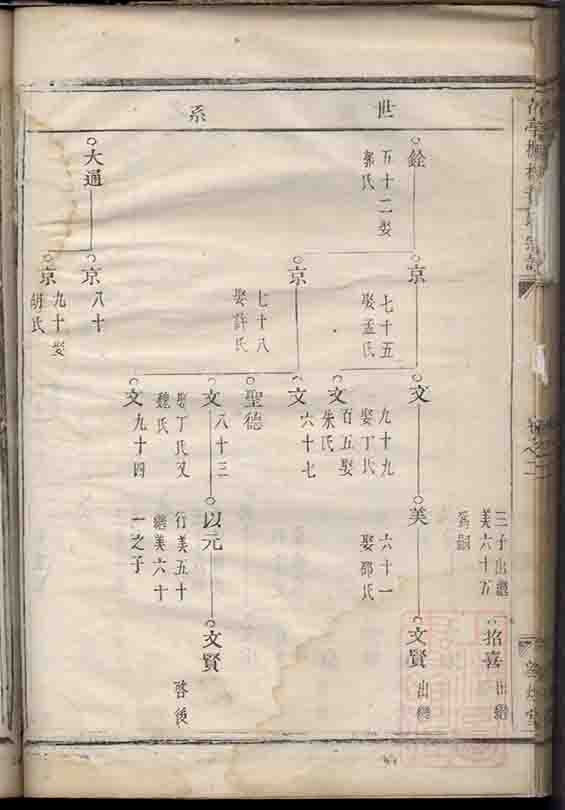 世系
三子出繼
美六十五
為嗣
招喜
出繼
銓
五十二娶
郭氏
京
七十五
娶孟氏
文
九十九
娶丁氏
美
六十一
娶邵氏
文賢
出繼
文
百五娶
朱氏
京
七十八
娶許氏
文
六十七
聖德
文
八十三
娶丁氏又
魏氏
以元
行美五十
繼美六十
一之子
文賢
啓後
文
九十四
大通
京
八十
京
九十娶
胡氏